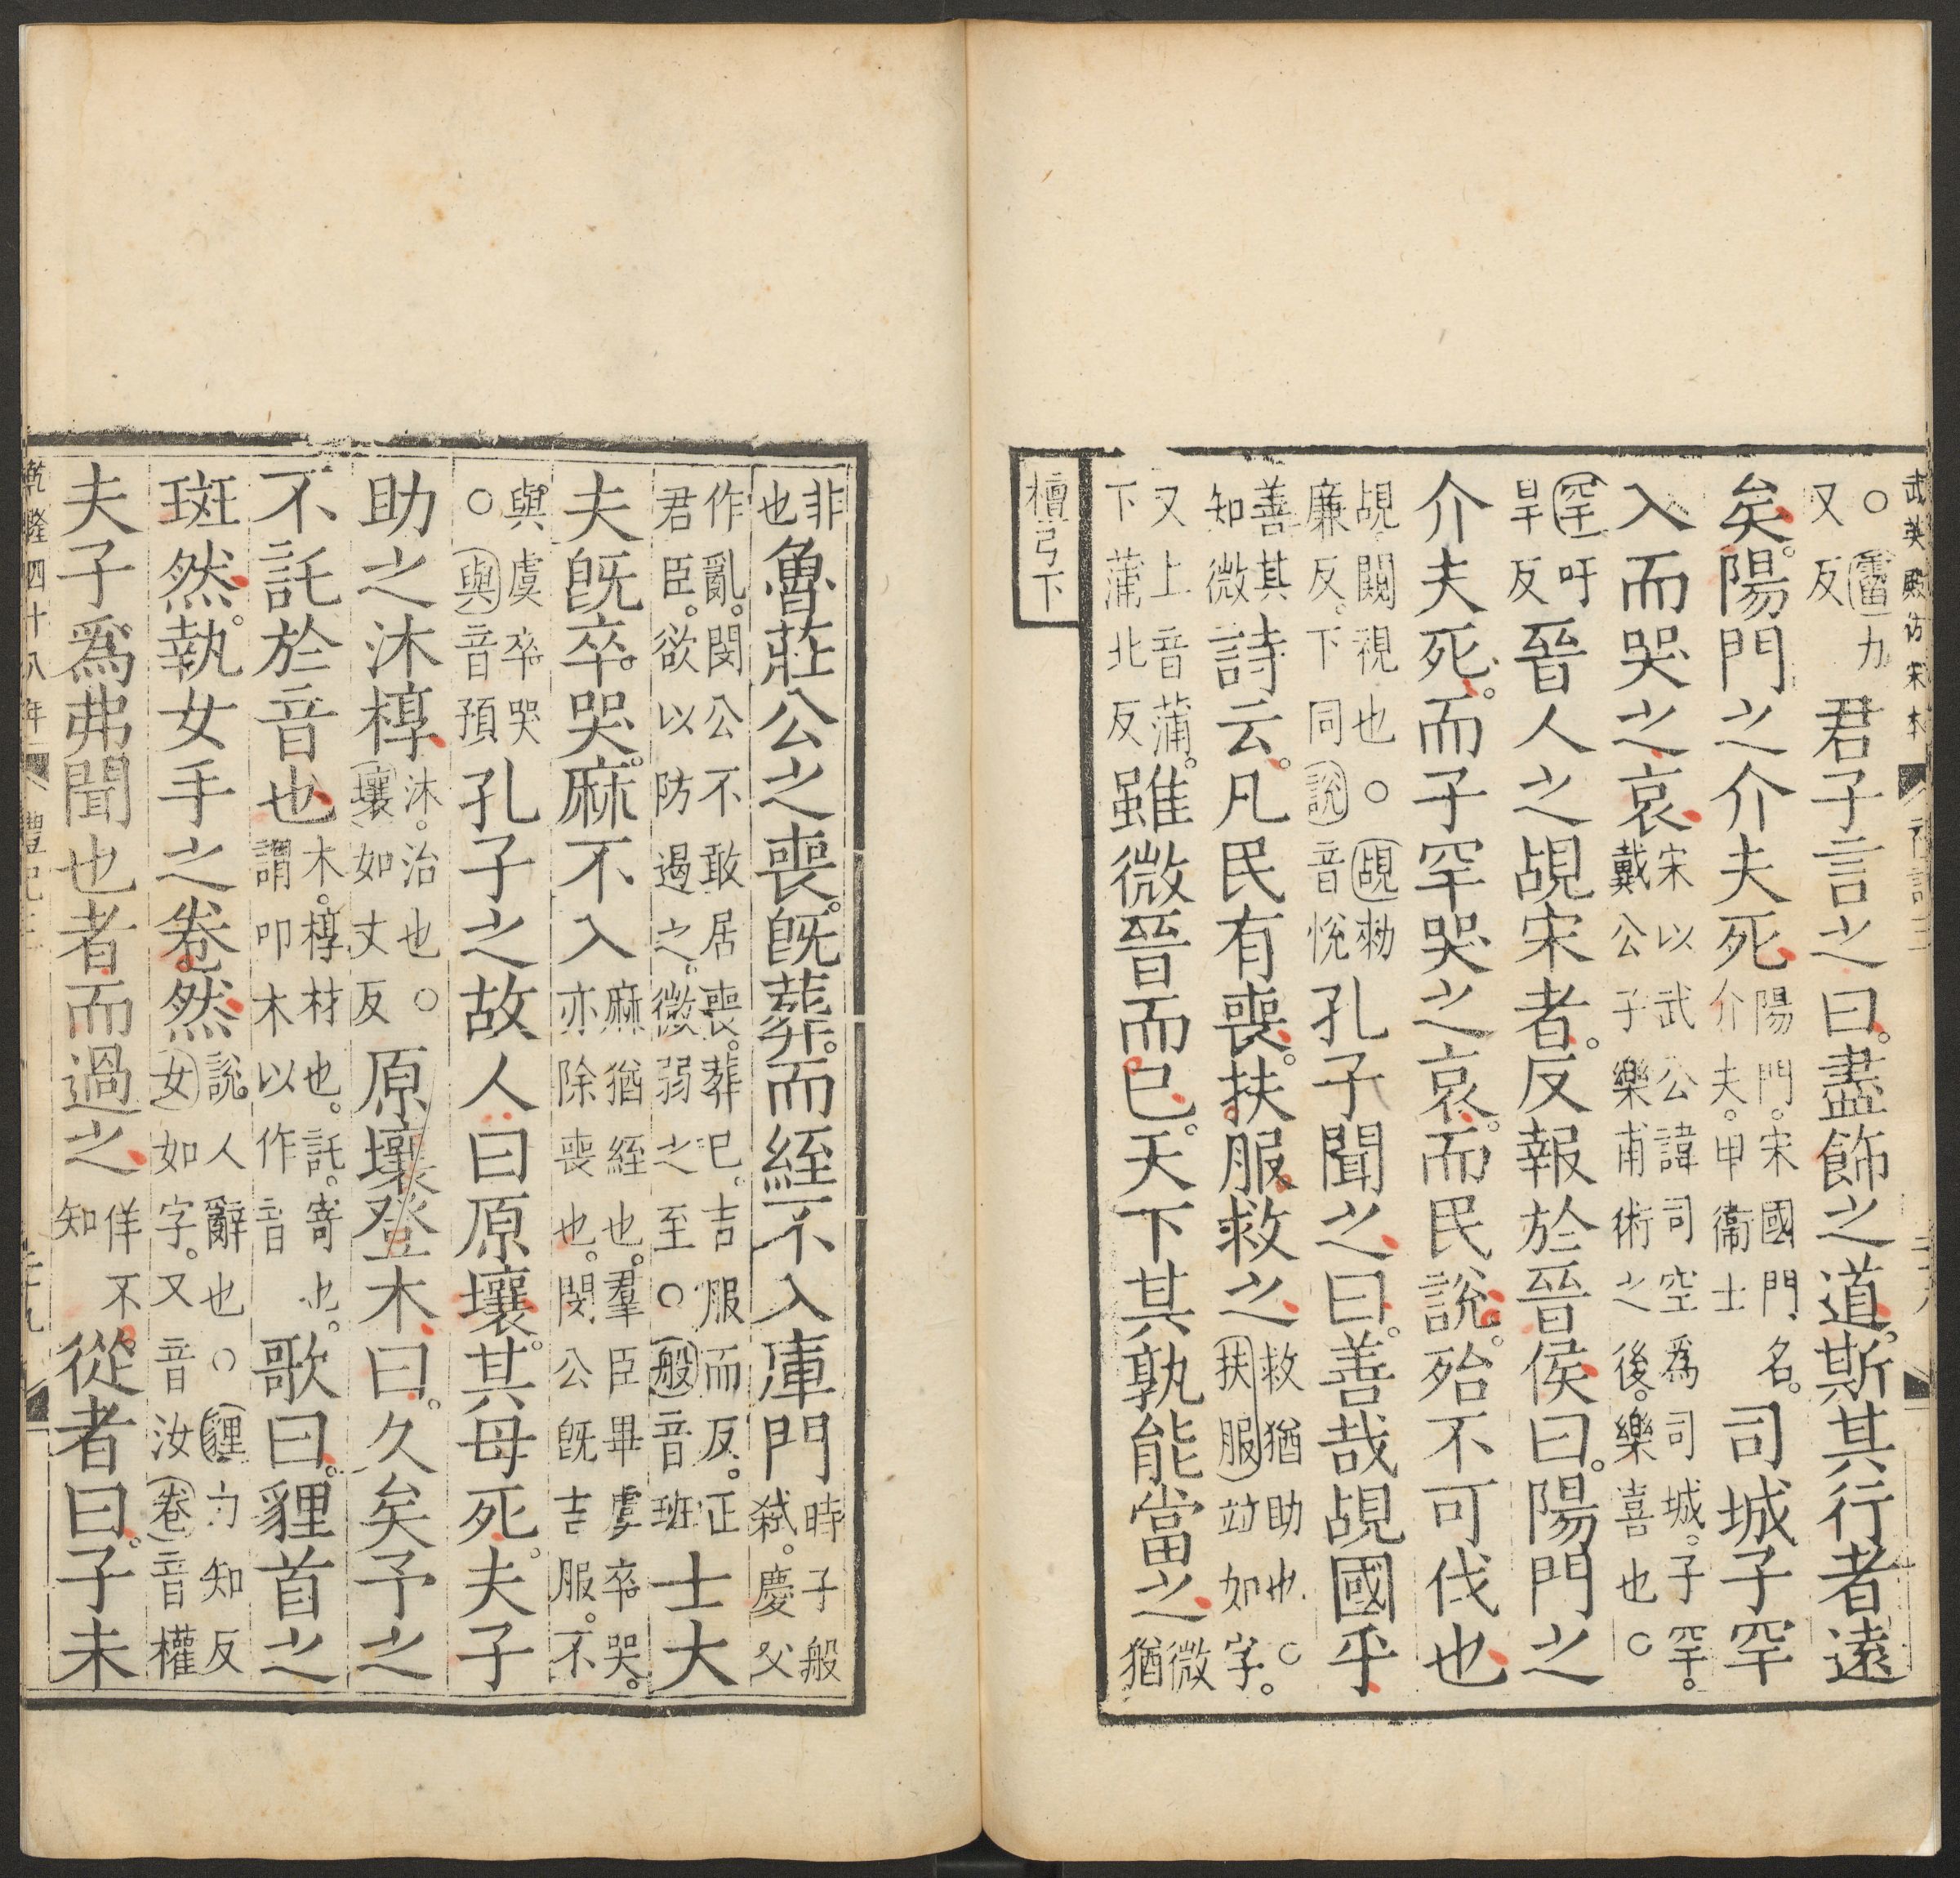 武英殿仿宋本
○霤力又反君子言之曰。盡飾之道。斯其行者遠
矣。陽門之介夫死陽門。宋國門名。介夫。甲衞士司城子罕
入而哭之哀宋以武公諱司空爲司城。子罕。戴公子樂甫術之後。樂喜也○
罕吁旱反晉人之覘宋者。反報於晉侯曰。陽門之
介夫死。而子罕哭之哀。而民說。殆不可伐也
覘闚視也○覘勑廉反。下同說音悅孔子聞之曰。善哉覘國乎
善其知微詩云。凡民有喪。扶服救之救猶助也。○扶服竝如字。
又上音蒲。下蒲北反雖微晉而已。天下其孰能當之微猶
檀弓下
非也魯莊公之喪。既葬。而絰不入庫門時子般弑。慶父
作亂。閔公不敢居喪。葬已。吉服而反。正君臣。欲以防遏之。微弱之至○般音班士大
夫既卒哭。麻不入麻猶絰也。羣臣畢虞卒哭。亦除喪也。閔公既吉服。不
與虞卒哭○與音預孔子之故人曰原壤。其母死。夫子
助之沐椁沐。治也○壤如丈反原壤登木曰。久矣予之
不託於音也木。椁材也。託。寄也。謂叩木以作音歌曰。貍首之
斑然。執女手之卷然說。人辭也○貍力知反女如字。又音汝卷音權
夫子爲弗聞也者而過之佯不知從者曰。子未
乾隆四十八年 禮記三 二十九